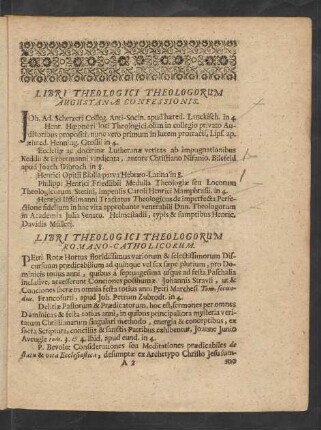 LIBRI THEOLOGICI THEOLOGORUM
AUGUSTANÆ CONFESSIONIS.
JOh. Ad. Schertzeri Colleg. Anti-Socin. apud hæred. Lanckisch. in 4.
Henr. Höpneri loci Theologici, olim in collegio privato Au-
ditoribus propositi, nunc verò primùm in lucem protracti, Lips. ap.
hæred. Henning. Grosii in 4.
Ecclesiæ ac doctrinæ Lutheranæ veritas ab impugnationibus
Keddii & Erbermanni vindicata, autore Christiano Nifanio. Bilefeld
apud Joach. in 8.
Henrici Opitii Bibliaparva Hebræo-Latina in 8.
Philippi Henrici Friedlibii Medulla Theologiæ seu Locorum
Theologicorum. Stetini, impensis Caroli Henrici Mamphrasii. in 4.
Henrici Ußlemanni Tractatus Theologicus de imperfecta Perfe-
ctione fidelium in hac vita approbante venerabili Dnn. Theologorum
in Academia Julia Senatu. Helmestadii, typis & sumptibus Henric.
Davidis Mülleri.
LIBRI THEOLOGICI THEOLOGORUM
ROMANO-CATHOLICORUM.
PEtri Rotæ Hortus floridissimus variorum & selectissimorum Dis-
cursuum prædicabilium ad quinque vel sex sæpe plurium, pro Do-
minicis totius anni, quibus à septuagesima usque ad festa Paschalia
inclusivè, accesserunt Conciones posthumæ Johannis Stravii, ut &
Conciones sacræ in omnia festa totius anni Petri Marchesi Tom. secun-
dus. Francofurti, apud Joh. Petrum Zubrodt. in 4.
Debitæ Pastorum & Prædicatorum, hoc est, sermones per omnes
Dominicas & festa totius anni, in quibus principaliora mysteria veri-
tatum Christianarum singulari methodo, energiâ & conceptibus, ex
sacra Scriptura, conciliis & sanctis Patribus exhibentur. Joanne Junio
Aveugle tom. 3. & 4. ibid. apud eund. in 4.
P. Berolet Considerationes seu Meditationes prædicabiles de
statu & vita Ecclesiastica, desumptæ ex Archetypo Christo Jesu sum-
A 2
mo